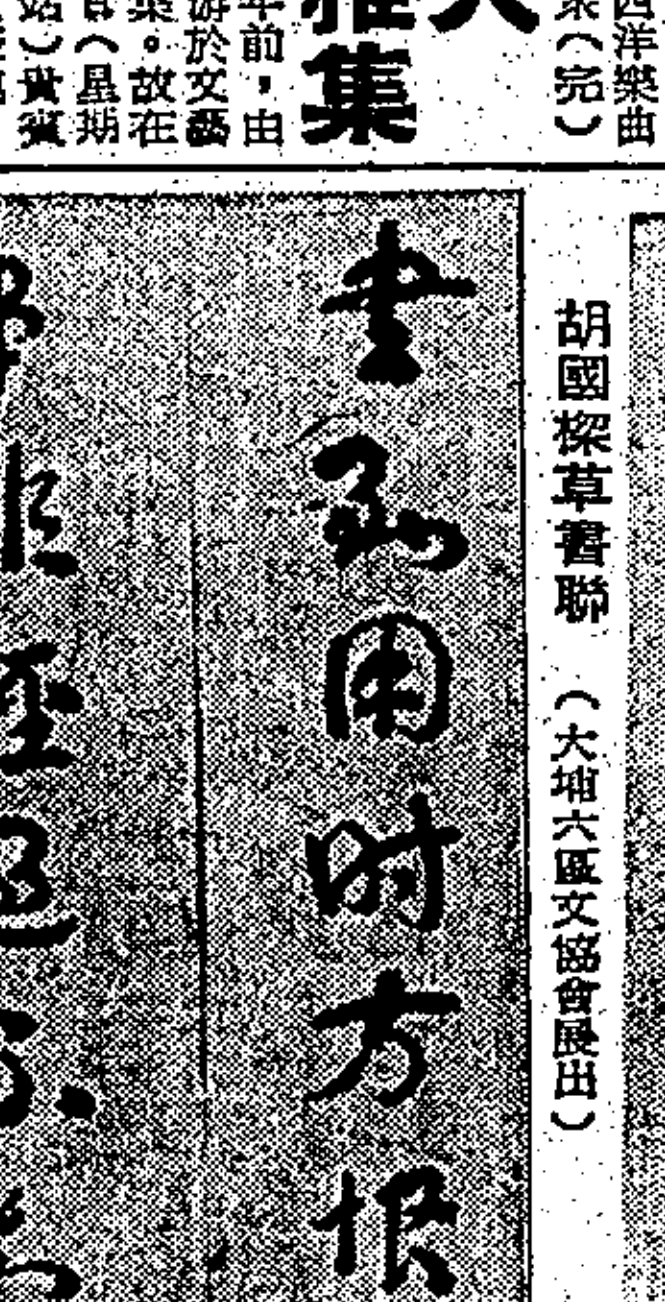 西洋樂曲
（完）
雅集
年前，由
游於文藝
集。故在
（星期
站）貴賓
胡國琛草書聯 （大埔六區文協會展出）
書到用時方恨
非經過